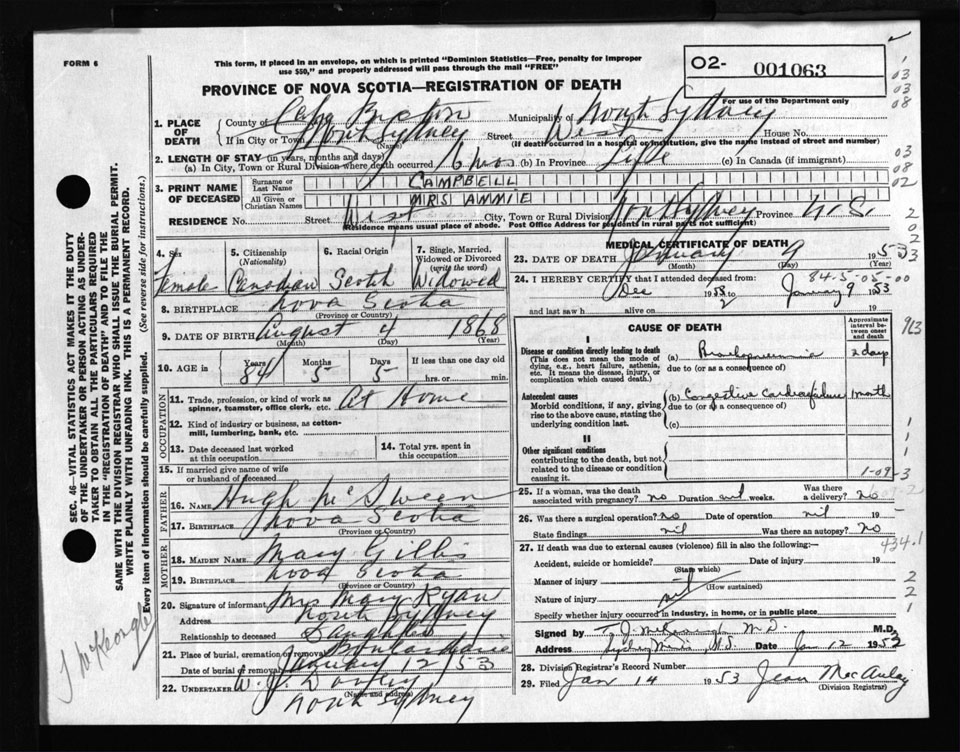 FORM 6
This form, if placed in an envelope, on which is printed "Dominion Statistics—Free, penalty for improper
use $50," and properly addressed will pass through the mail "FREE"
O2- 001063
For use of the Department only
PROVINCE OF NOVA SCOTIA—REGISTRATION OF DEATH
1. PLACE OF DEATH
County of Cape Breton Municipality of North Sydney
If in City or Town North Sydney Street West House No.
(Name) (If death occurred in a hospital or institution, give the name instead of street and number)
2. LENGTH OF STAY (in years, months and days)
(a) In City, Town or Rural Division where death occurred 16 mos (b) In Province Life (c) In Canada (if immigrant)
3. PRINT NAME OF DECEASED
Surname or Last Name CAMPBELL
All Given or Christian Names MRS ANNIE
RESIDENCE No. Street West City, Town or Rural Division North Sydney Province N.S.
(Residence means usual place of abode. Post Office Address for residents in rural parts not sufficient)
4. Sex Female
5. Citizenship (Nationality) Canadian
6. Racial Origin Scotch
7. Single, Married, Widowed or Divorced (write the word) Widowed
8. BIRTHPLACE Nova Scotia
(Province or Country)
9. DATE OF BIRTH August 4 1868
(Month) (Day) (Year)
10. AGE in Years 84 Months 5 Days 5 If less than one day old hrs. or min.
OCCUPATION
11. Trade, profession, or kind of work as spinner, teamster, office clerk, etc. At Home
12. Kind of industry or business, as cotton-mill, lumbering, bank, etc.
13. Date deceased last worked at this occupation
14. Total yrs. spent in this occupation
15. If married give name of wife or husband of deceased
FATHER
16. NAME Hugh McSween
17. BIRTHPLACE Nova Scotia
(Province or Country)
MOTHER
18. MAIDEN NAME Mary Gillis
19. BIRTHPLACE Nova Scotia
(Province or Country)
20. Signature of informant Mrs Mary Ryan
Address North Sydney
Relationship to deceased Daughter
21. Place of burial, cremation or removal Boulardarie
Date of burial or removal January 12/53
22. UNDERTAKER W. J. Dooley
(Name and address)
North Sydney
MEDICAL CERTIFICATE OF DEATH
23. DATE OF DEATH January 9 1953
(Month) (Day) (Year)
84-5-05-00
24. I HEREBY CERTIFY that I attended deceased from:
Dec 1952 to January 9 1953
and last saw h alive on 19
CAUSE OF DEATH
Approximate interval between onset and death
I
Disease or condition directly leading to death (a) Bronchopneumonia 2 days
(This does not mean the mode of dying, e.g., heart failure, asthenia, etc. It means the disease, injury, or complication which caused death.)
due to (or as a consequence of)
Antecedent causes (b) Congestive cardiac failure 1 month
Morbid conditions, if any, giving rise to the above cause, stating the underlying condition last.
due to (or as a consequence of)
(c)
II
Other significant conditions
contributing to the death, but not related to the disease or condition causing it.
1-09-3
25. If a woman, was the death associated with pregnancy? no Duration nil weeks. Was there a delivery? no
26. Was there a surgical operation? no Date of operation nil 19
State findings nil Was there an autopsy? No
434.1
27. If death was due to external causes (violence) fill in also the following:—
Accident, suicide or homicide? Date of injury 19
(State which)
Manner of injury
(How sustained)
Nature of injury nil
Specify whether injury occurred in industry, in home, or in public place
Signed by M.D.
Address Sydney Mines N.S. Date Jan 12 1953
28. Division Registrar's Record Number
29. Filed Jan 14 1953 Jean MacAulay
(Division Registrar)
SEC. 46—VITAL STATISTICS ACT MAKES IT THE DUTY
OF THE UNDERTAKER OR PERSON ACTING AS UNDER-
TAKER TO OBTAIN ALL THE PARTICULARS REQUIRED
IN THE "REGISTRATION OF DEATH" AND TO FILE THE
SAME WITH THE DIVISION REGISTRAR WHO SHALL ISSUE THE BURIAL PERMIT.
WRITE PLAINLY WITH UNFADING INK. THIS IS A PERMANENT RECORD.
Every item of information should be carefully supplied. (See reverse side for instructions.)